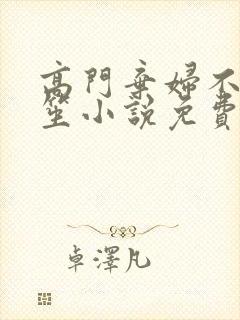 高門棄婦不
笙小說免費
卓澤凡